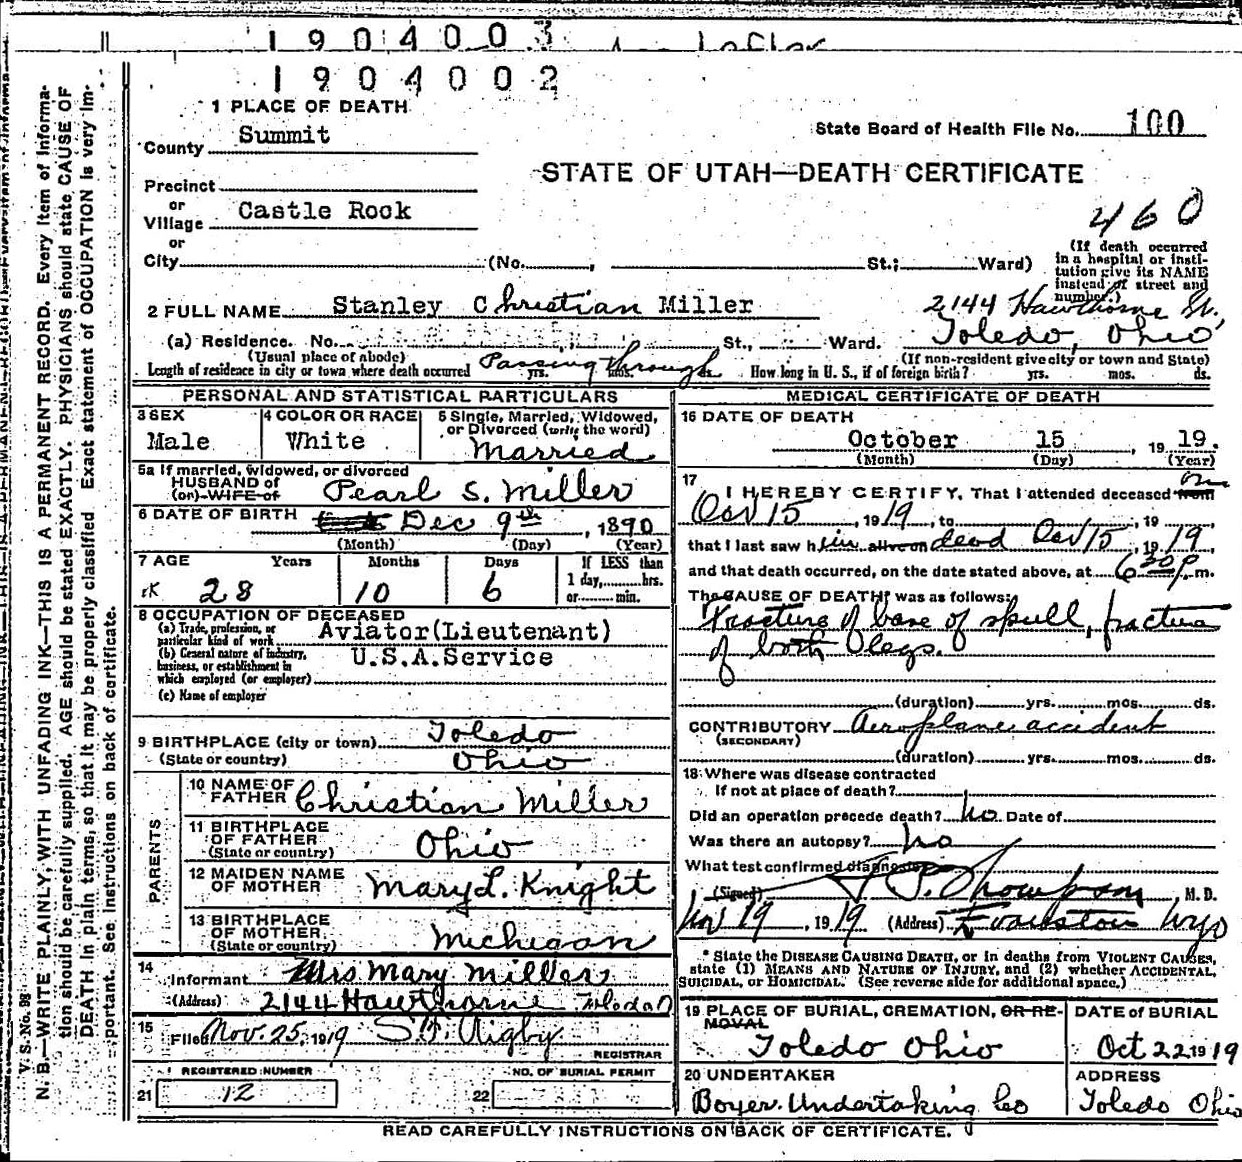 1904003
1904002
1 PLACE OF DEATH
County Summit
State Board of Health File No. 100
STATE OF UTAH—DEATH CERTIFICATE
Precinct
or
Village Castle Rock
or
City (No. , St.; Ward)
460
(If death occurred in a hospital or institution give its NAME instead of street and number.)
2 FULL NAME Stanley Christian Miller
2144 Hawthorne St.,
(a) Residence. No. St., Ward. Toledo, Ohio
(Usual place of abode) (If non-resident give city or town and State)
Length of residence in city or town where death occurred Passing through yrs. mos. ds. How long in U. S., if of foreign birth? yrs. mos. ds.
PERSONAL AND STATISTICAL PARTICULARS
3 SEX Male
4 COLOR OR RACE White
5 Single, Married, Widowed, or Divorced (write the word) Married
5a If married, widowed, or divorced
HUSBAND OF
(or) WIFE of Pearl S. Miller
6 DATE OF BIRTH Dec 9th, 1890
(Month) (Day) (Year)
7 AGE Years Months Days If LESS than
28 10 6 1 day, hrs.
or min.
8 OCCUPATION OF DECEASED
(a) Trade, profession, or particular kind of work Aviator(Lieutenant)
(b) General nature of industry, business, or establishment in which employed (or employer) U.S.A.Service
(c) Name of employer
9 BIRTHPLACE (city or town) Toledo
(State or country) Ohio
PARENTS
10 NAME OF FATHER Christian Miller
11 BIRTHPLACE OF FATHER (State or country) Ohio
12 MAIDEN NAME OF MOTHER Mary L. Knight
13 BIRTHPLACE OF MOTHER (State or country) Michegan
14 Informant Mrs Mary Miller
(Address) 2144 Hawthorne Toledo O
15 Filed Nov. 25, 1919 S. F. Rigby
REGISTRAR
REGISTERED NUMBER
21 12
NO. OF BURIAL PERMIT
22
MEDICAL CERTIFICATE OF DEATH
16 DATE OF DEATH
October 15 1919.
(Month) (Day) (Year)
17 I HEREBY CERTIFY, That I attended deceased from on
Oct 15, 1919, to , 19
that I last saw him alive on dead Oct 15, 1919,
and that death occurred, on the date stated above, at 6 30 p m.
The CAUSE OF DEATH* was as follows:
Fracture of base of skull, fracture
of both legs.
(duration) yrs. mos. ds.
CONTRIBUTORY Aeroplane accident
(SECONDARY)
(duration) yrs. mos. ds.
18 Where was disease contracted
If not at place of death?
Did an operation precede death? No. Date of
Was there an autopsy? No
What test confirmed diagnosis?
(Signed) Thompson M. D.
Nov 19, 1919 (Address) Evanston Wyo
* State the DISEASE CAUSING DEATH, or in deaths from VIOLENT CAUSES, state (1) MEANS AND NATURE OF INJURY, and (2) whether ACCIDENTAL, SUICIDAL, or HOMICIDAL. (See reverse side for additional space.)
19 PLACE OF BURIAL, CREMATION, OR REMOVAL
Toledo Ohio
DATE of BURIAL
Oct 22 1919
20 UNDERTAKER
Boyer Undertaking Co
ADDRESS
Toledo Ohio
READ CAREFULLY INSTRUCTIONS ON BACK OF CERTIFICATE.
V. S. No. 98
N. B.—WRITE PLAINLY, WITH UNFADING INK—THIS IS A PERMANENT RECORD. Every item of informa-
tion should be carefully supplied. AGE should be stated EXACTLY. PHYSICIANS should state CAUSE OF
DEATH in plain terms, so that it may be properly classified Exact statement of OCCUPATION is very im-
portant. See instructions on back of certificate.